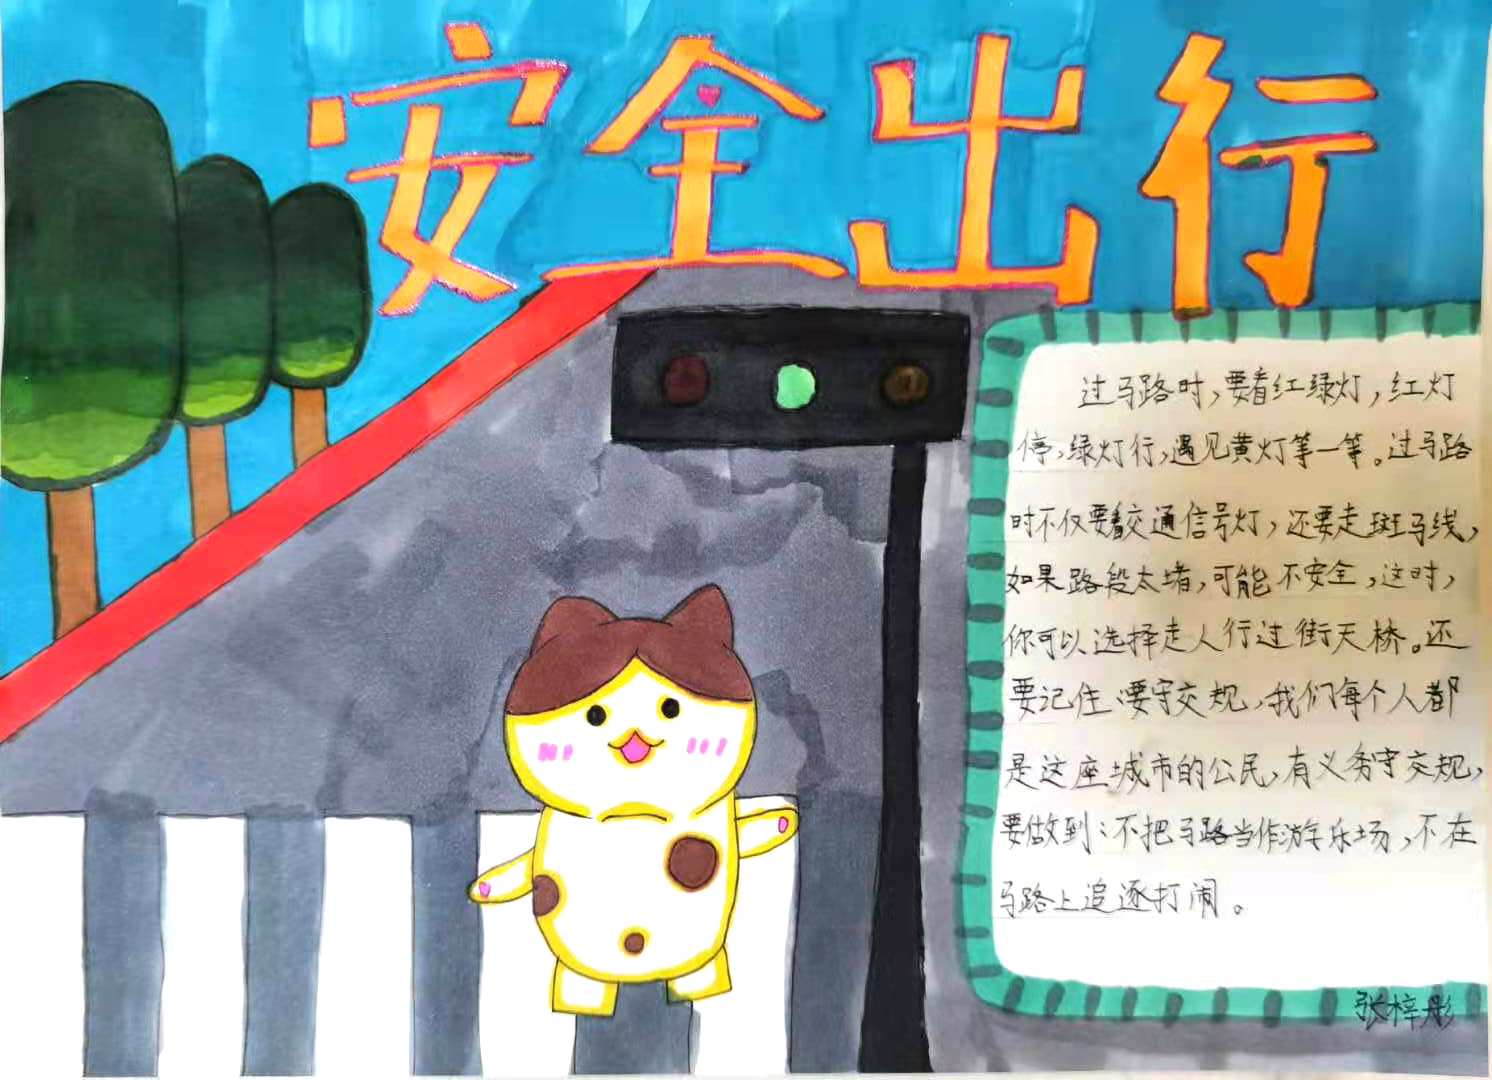 安全出行
过马路时，要看红绿灯，红灯
停，绿灯行，遇见黄灯等一等。过马路
时不仅要看交通信号灯，还要走斑马线，
如果路段太堵，可能不安全，这时，
你可以选择走人行过街天桥。还
要记住：要守交规，我们每个人都
是这座城市的公民，有义务守交规，
要做到：不把马路当作游乐场，不在
马路上追逐打闹。
张梓彤